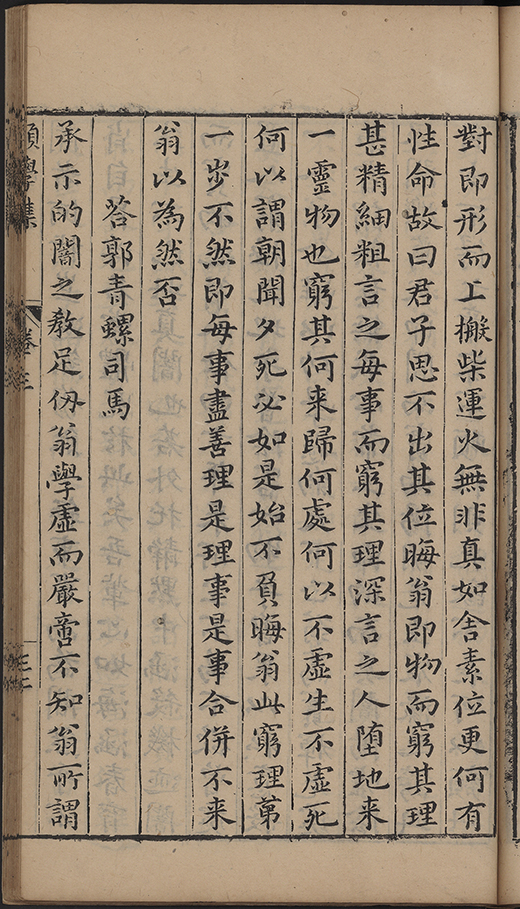 對即形而上搬柴運火無非真如舍素位更何有
性命故曰君子思不出其位晦翁即物而窮其理
甚精細粗言之每事而窮其理深言之人墮地來
一靈物也窮其何来歸何處何以不虛生不虛死
何以謂朝聞夕死必如是始不負晦翁此窮理第
一步不然即每事盡善理是理事是事合併不来
翁以為然否
荅郭青螺司馬
承示的闇之教足仞翁學虛而嚴啻不知翁所謂
願學集
卷三